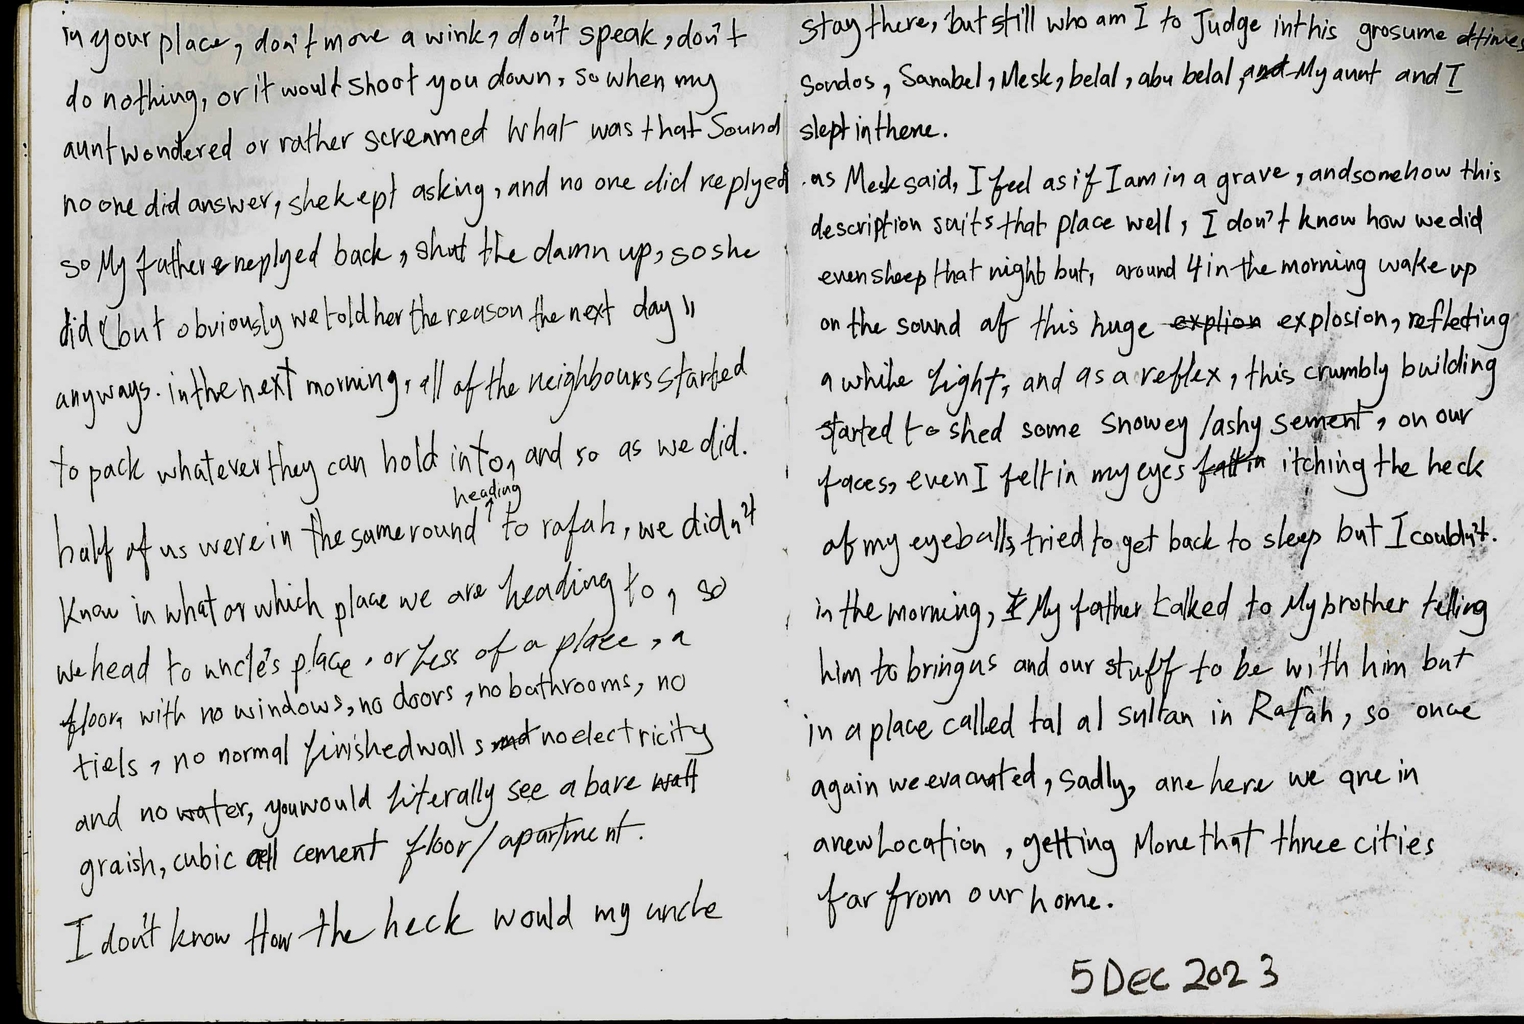 in your place, don't move a wink, don't speak, don't
do nothing, or it would shoot you down, so when my
aunt wondered or rather screamed what was that sound
no one did answer, she kept asking, and no one did replyed
so My father replyed back, shut the damn up, so she
did (but obviously we told her the reason the next day))
anyways. in the next morning, all of the neighbours started
to pack whatever they can hold into, and so as we did.
half of us were in the same round heading to rafah, we didn't
know in what or which place we are heading to, so
we head to uncle's place, or less of a place, a
floor, with no windows, no doors, no bathrooms, no
tiels, no normal finished walls and no electricity
and no water, you would literally see a bare wall
graish, cubic all cement floor/apartment.
I don't know How the heck would my uncle
stay there, but still who am I to Judge in this grosume times
Sondos, Sanabel, Mesk, belal, abu belal, and My aunt and I
slept in there.
as Mesk said, I feel as if I am in a grave, and somehow this
description suits that place well, I don't know how we did
even sheep that night but, around 4 in the morning wake up
on the sound of this huge explion explosion, reflecting
a while light, and as a reflex, this crumbly building
started to shed some snowey/ashy sement, on our
faces, even I felt in my eyes fall in itching the heck
of my eyeballs, tried to get back to sleep but I couldn't.
in the morning, I My father talked to My brother telling
him to bring us and our stuff to be with him but
in a place called tal al sultan in Rafah, so once
again we evacuated, sadly, are here we are in
a new Location, getting More that three cities
far from our home.
5 Dec 2023